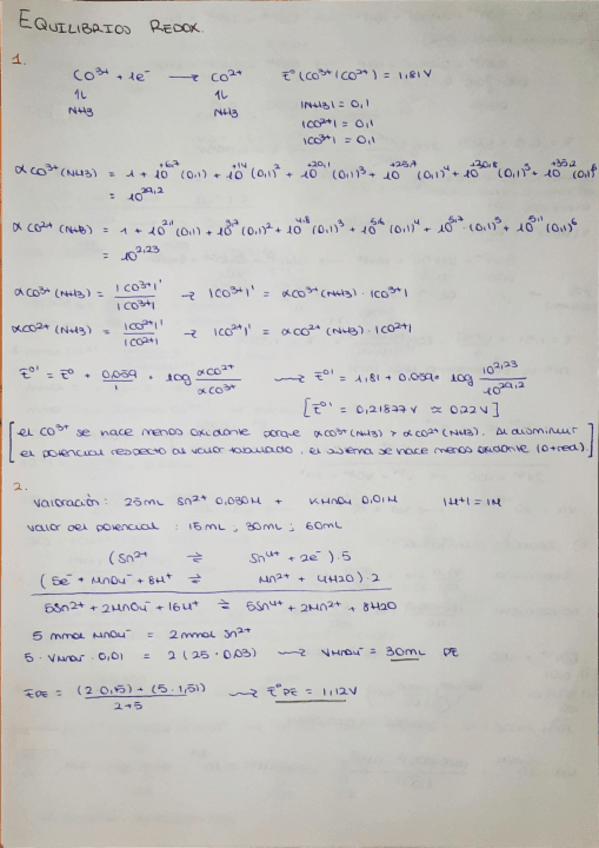 EQUILIBRIOS REDOX.
1.
Co³⁺ + 1e⁻ → Co²⁺ E°(Co³⁺/Co²⁺) = 1,81V
1L 1L |NH3| = 0,1
NH3 NH3 |Co²⁺| = 0,1
|Co³⁺| = 0,1
αCo³⁺(NH3) = 1 + 10^+6,7 (0,1) + 10^+14 (0,1)² + 10^+20,1 (0,1)³ + 10^+25,7 (0,1)⁴ + 10^+30,8 (0,1)⁵ + 10^+35,2 (0,1)⁶
= 10^29,2
αCo²⁺(NH3) = 1 + 10^2,1 (0,1) + 10^3,7 (0,1)² + 10^4,8 (0,1)³ + 10^5,6 (0,1)⁴ + 10^5,2 · (0,1)⁵ + 10^5,1 (0,1)⁶
= 10^2,23
αCo³⁺(NH3) = |Co³⁺|' / |Co³⁺| → |Co³⁺|' = αCo³⁺(NH3) · |Co³⁺|
αCo²⁺(NH3) = |Co²⁺|' / |Co²⁺| → |Co²⁺|' = αCo²⁺(NH3) · |Co²⁺|
E°' = E° + 0,059/1 · log αCo²⁺/αCo³⁺ → E°' = 1,81 + 0,059· log 10^2,23/10^29,2
[E°' = 0,21877V ≈ 0,22V]
[el Co³⁺ se hace menos oxidante porque αCo³⁺(NH3) > αCo²⁺(NH3). Al disminuir
el potencial respecto al valor tabulado, el sistema se hace menos oxidante (o +red).]
2.
Valoración: 25mL Sn²⁺ 0,030M + KMnO4 0,01M |H+| = 1M
Valor del potencial : 15mL ; 30mL ; 60mL
(Sn²⁺ ⇌ Sn⁴⁺ + 2e⁻)·5
(5e⁻ + MnO4⁻ + 8H⁺ ⇌ Mn²⁺ + 4H2O)·2
5Sn²⁺ + 2MnO4⁻ + 16H⁺ ⇌ 5Sn⁴⁺ + 2Mn²⁺ + 8H2O
5 mmol MnO4⁻ = 2 mmol Sn²⁺
5 · VMnO4⁻ · 0,01 = 2 (25 · 0,03) → VMnO4⁻ = 30mL PE
EPE = (2·0,15) + (5·1,51) / 2+5 → E°PE = 1,12V